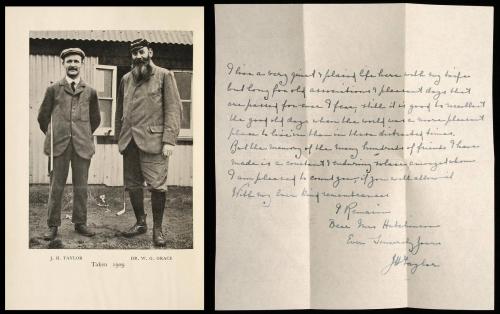 J. H. TAYLOR
DR. W. G. GRACE
Taken 1909
I live a very quiet & placid life here with my wife
but long for old associations & pleasant days that
are passed for ever I fear, still it is good to recollect
the good old days when the world was a more pleasant
place to live in than in these distracted times.
But the memory of the many hundreds of friends I have
made is a constant & enduring solace amongst whom
I am pleased to count you, if you will allow it
With my very kind remembrances
I Remain
Dear Mrs Hutchinson
Ever Sincerely Yours
JH Taylor